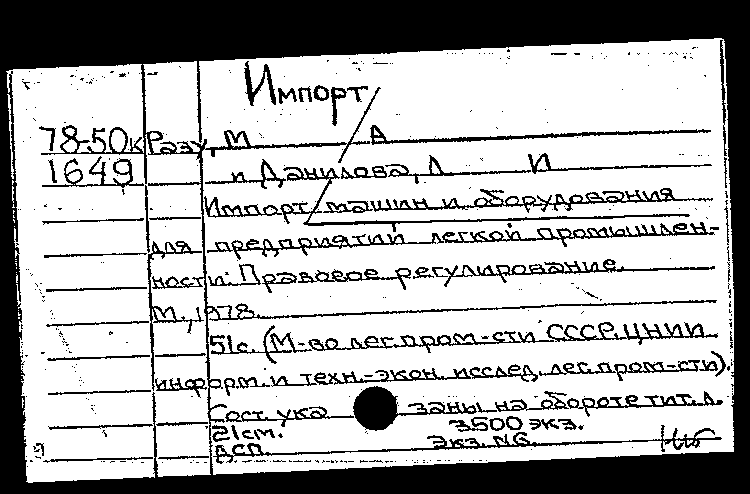 Импорт
78-50к Разу, М А
1649 и Данилова, Л И
Импорт машин и оборудования
для предприятий легкой промышлен-
ности: Правовое регулирование.
М., 1978.
51с. (М-во лег.пром-сти СССР, ЦНИИ
информ. и техн.-экон. исслед. лег. пром-сти).
Сост. ука заны на обороте тит. л.
21см. 3500 экз.
ДСП. Экз. №6.